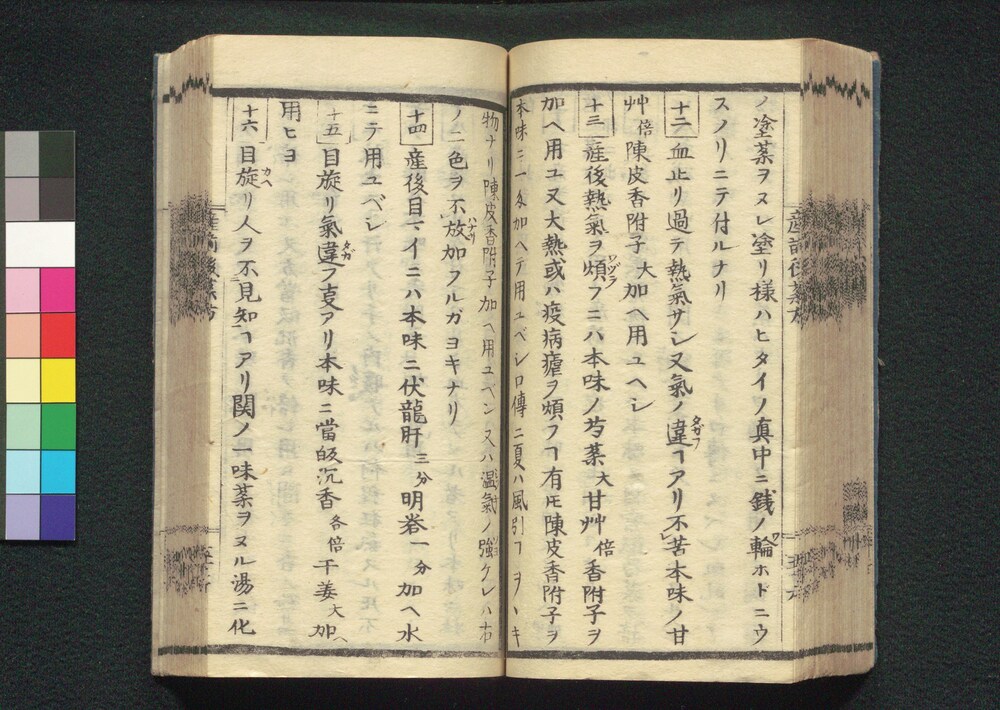 ノ塗薬ヲヌレ塗リ様ハヒタイノ真中ニ銭ノ輪ホドニウ
スノリニテ付ルナリ
十二 血止リ過テ熱氣サシ又氣ノ違ヿアリ不苦本味ノ甘
艸倍陳皮香附子大加ヘ用ユヘシ
十三 産後熱氣ヲ煩フニハ本味ノ芍薬大甘艸倍香附子ヲ
加ヘ用ユ又大熱或ハ疫病瘧ヲ煩フヿ有𪜈陳皮香附子ヲ
本味ニ一匁加ヘテ用ユベシ口傳ニ夏ハ風引ヿヲヽキ
物ナリ陳皮香附子加ヘ用ユベシ又ハ温氣ノ強ケレハ右
ノ二色ヲ不放加フルガヨキナリ
十四 産後目マイニハ本味ニ伏龍肝三分明礬一分加ヘ水
ニテ用ユベシ
十五 目旋リ氣違フ叓アリ本味ニ當皈沉香各倍干姜大加ヘ
用ヒヨ
十六 目旋リ人ヲ不見知ヿアリ関ノ一味薬ヲヌル湯ニ化